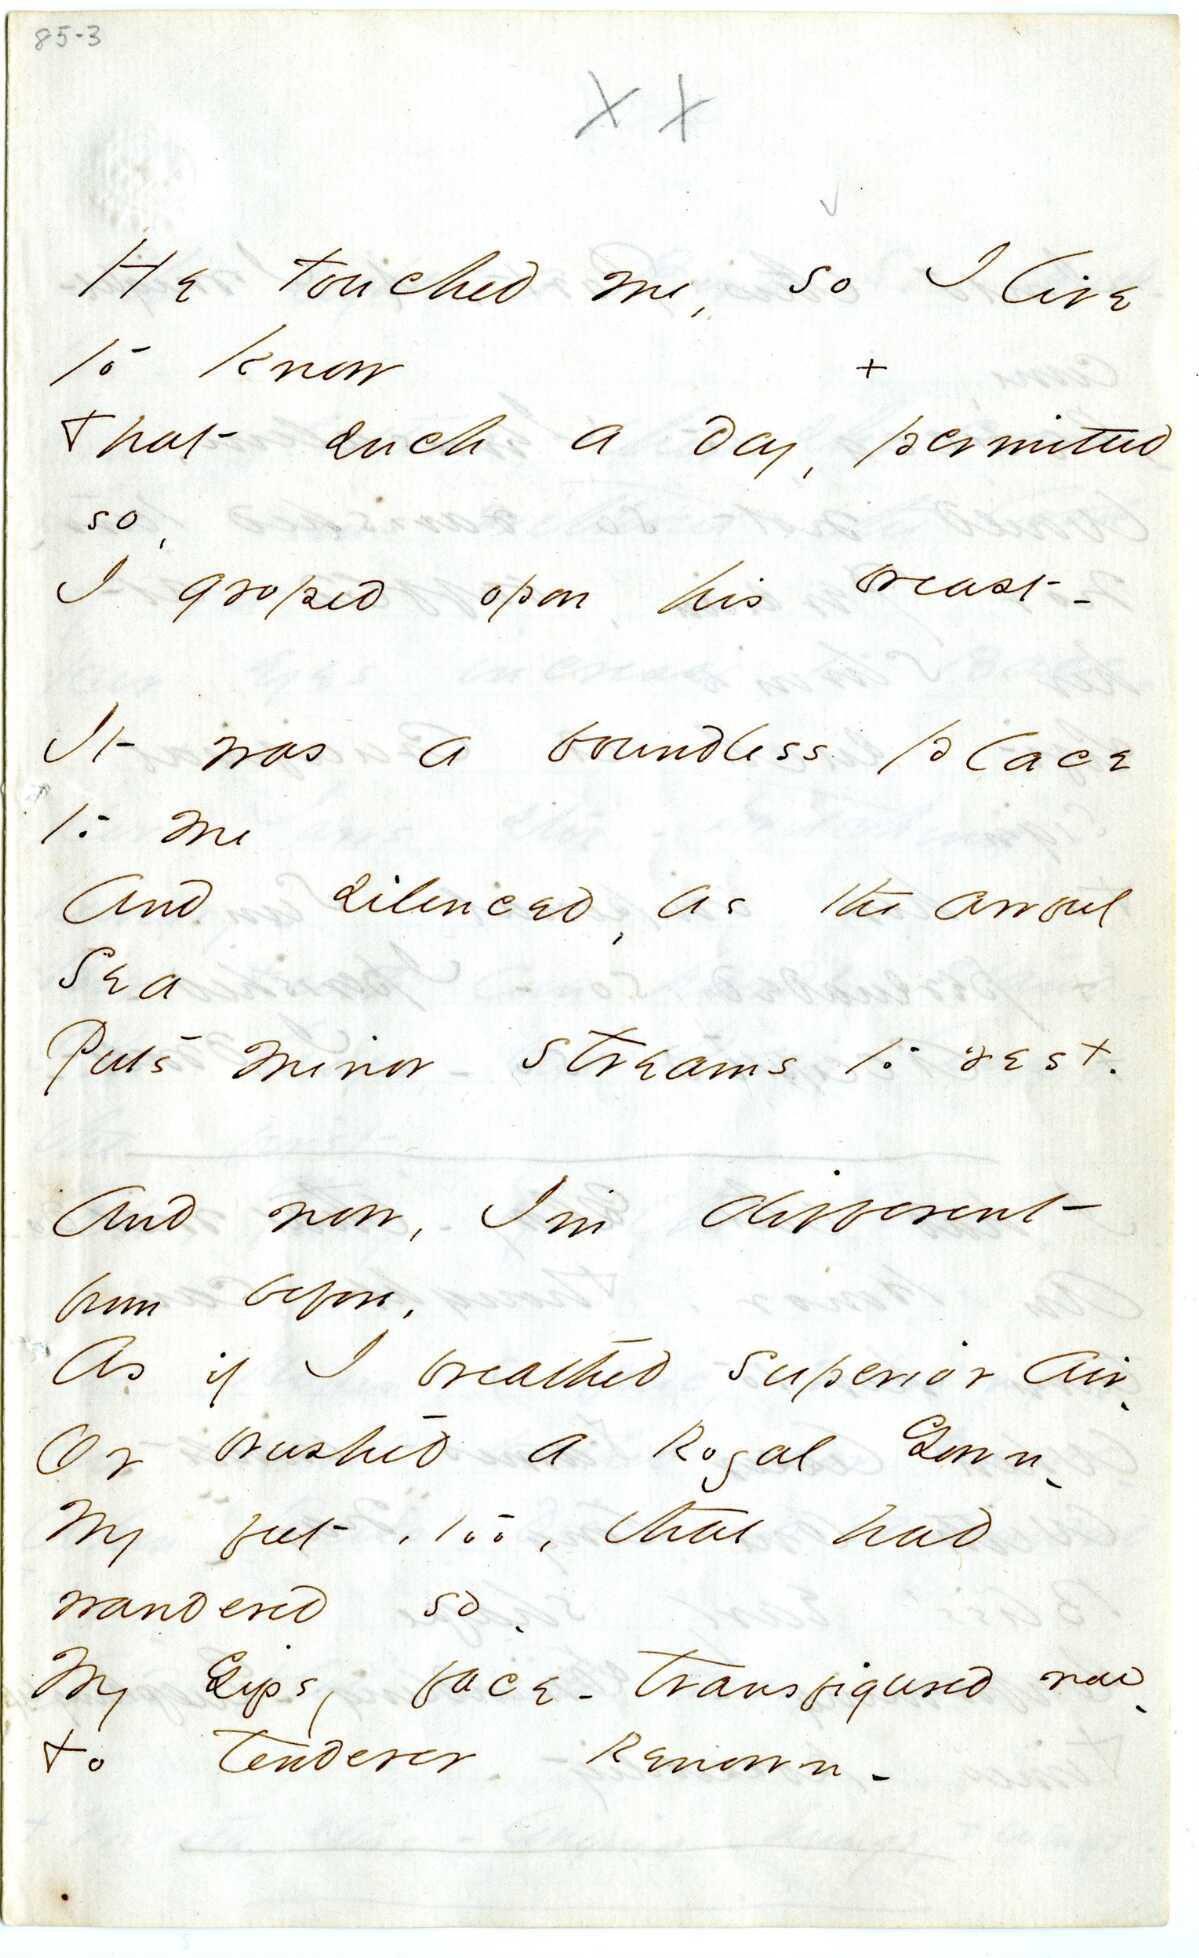 85-3
X X
He touched me, so I live
to know
+
That such a day, permitted
so,
I groped upon his breast -
It was a boundless place
to me
And silenced, as the awful
Sea
Puts minor streams to rest.
And now, I'm different
from before,
As if I breathed superior air,
Or brushed a Royal Gown,
My feet, too, that had
wandered so,
My Gipsy face - transfigured now,
To tenderer Renown -